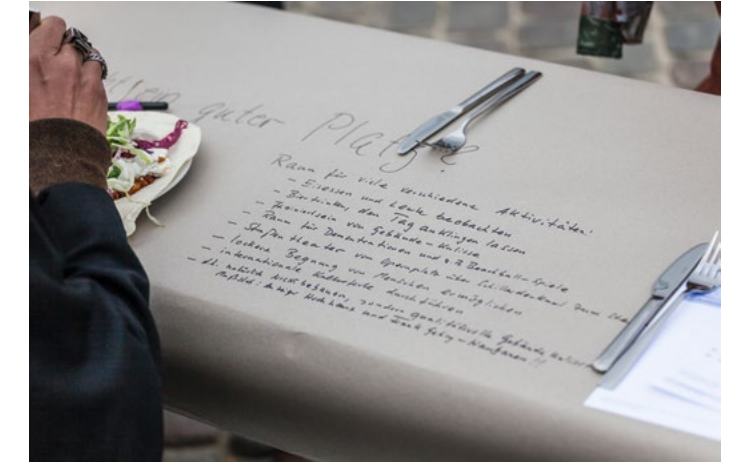 ein guter Platz?
Raum für viele verschiedene Aktivitäten:
- Eisessen und Leute beobachten
- Biertrinken, den Tag ausklingen lassen
- Fasziniertsein von Gebäude-Kulisse
- Raum für Demonstrationen und z.B. Beachball-Spiele
- Straßentheater von Opernplatz über Schillerdenkmal zum
- lockere Begegnung von Menschen ermöglichen
- internationale Kulturfeste durchführen
- d.h. natürlich nicht bebauen, sondern qualitätsvolle Gebäude
Hochhaus und Frank Gehry-